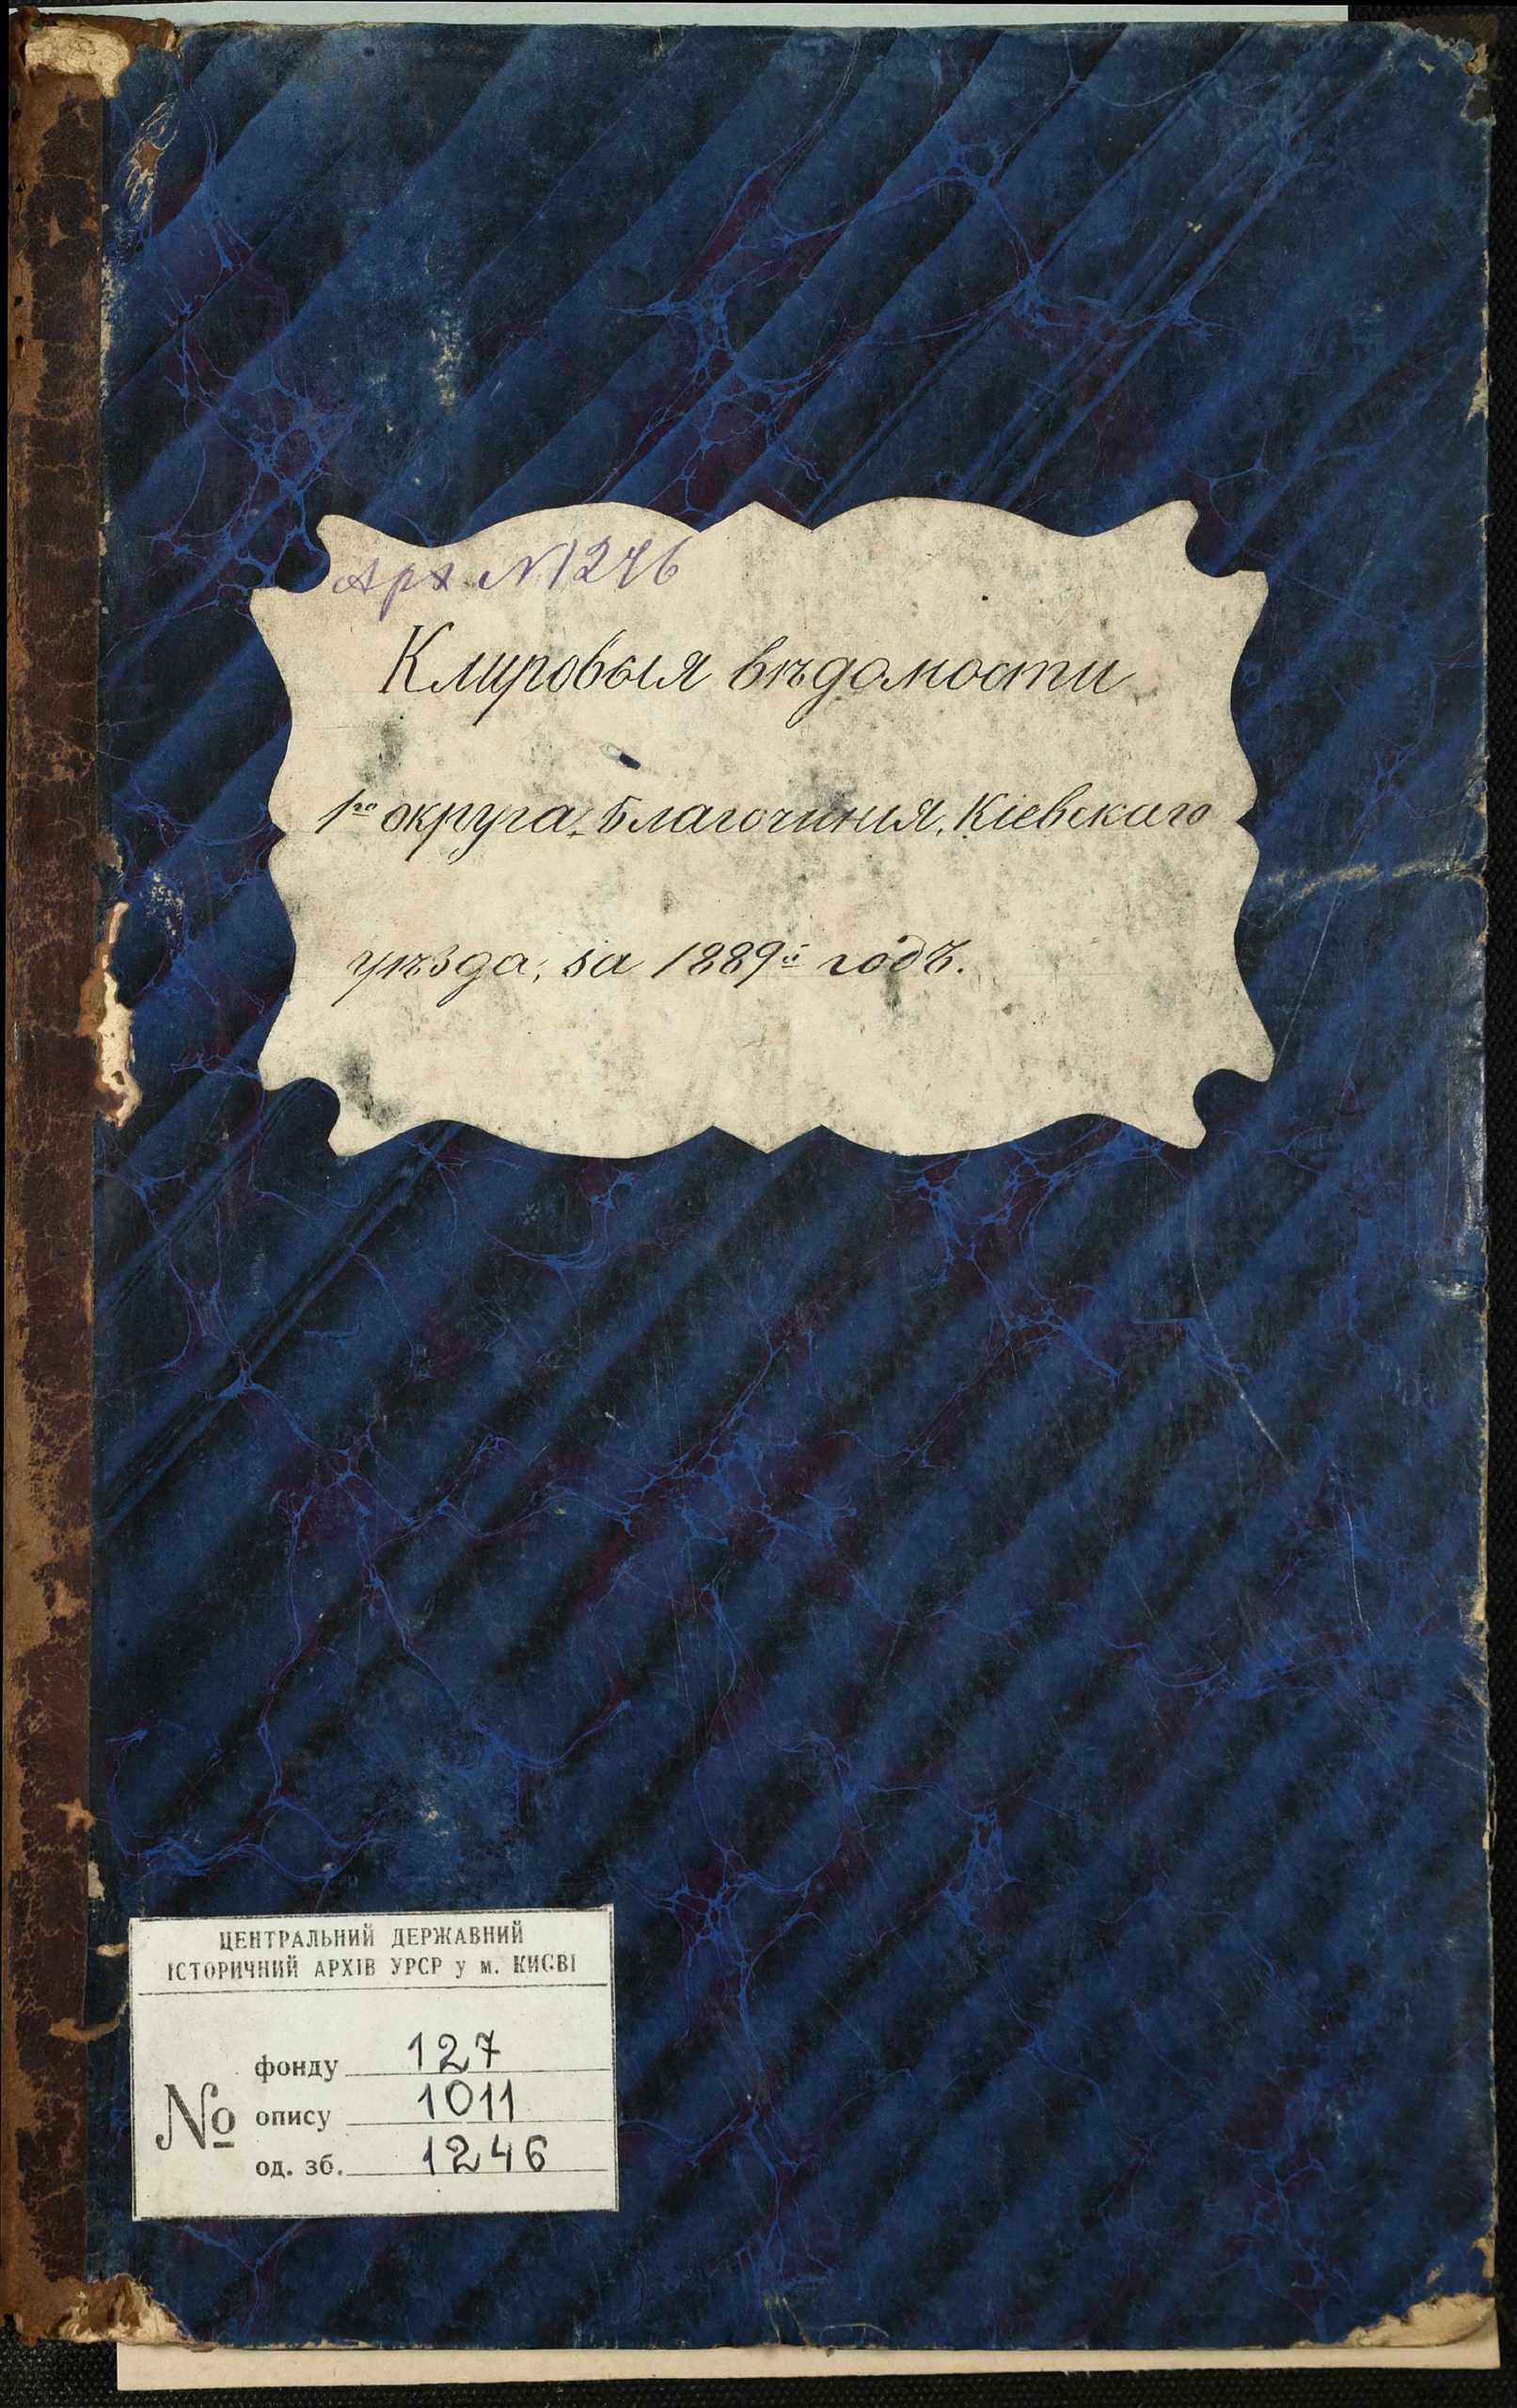 Арх №1246
Клировыя вѣдомости
1го округа, благочинія, Кіевскаго
уѣзда, за 1889й годъ.
ЦЕНТРАЛЬНИЙ ДЕРЖАВНИЙ
ІСТОРИЧНИЙ АРХІВ УРСР у м. КИЄВІ
фонду 127
№ опису 1011
од. зб. 1246